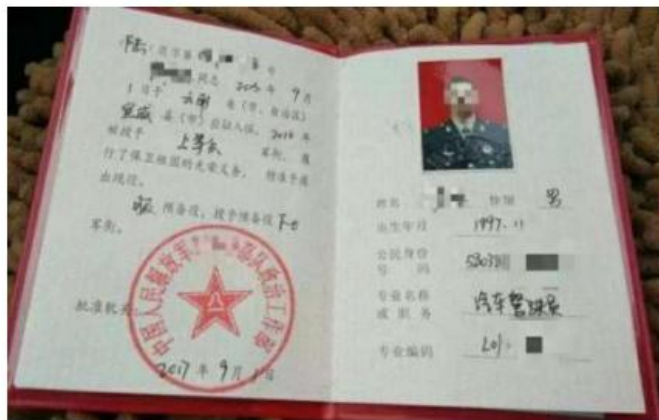 退字第 号
同志 2015 年 9 月
1 日于 云南 省（市、自治区）
宣威 县（市）应征入伍，2016 年
被授予 上等兵 军衔，履
行了保卫祖国的光荣义务，特准予退
出现役。
服 预备役，授予预备役 下士
军衔。
批准机关：
中国人民解放军 部队政治工作部
2017 年 9 月 1 日
姓名 性别 男
出生年月 1997.11
公民身份
号 码
专业名称
或职务 汽车驾驶员
专业编码